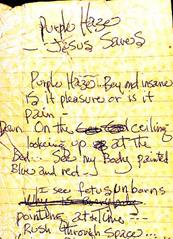 Purple Haze
- Jesus Saves
Purple Haze.. Beyond insane
is it pleasure or is it
pain -
Down On the ceiling
looking up at the
Bed.. See my Body painted
Blue and red...
I see fetus unborns
Why is everybody
pointing at me...
Rush through Space...